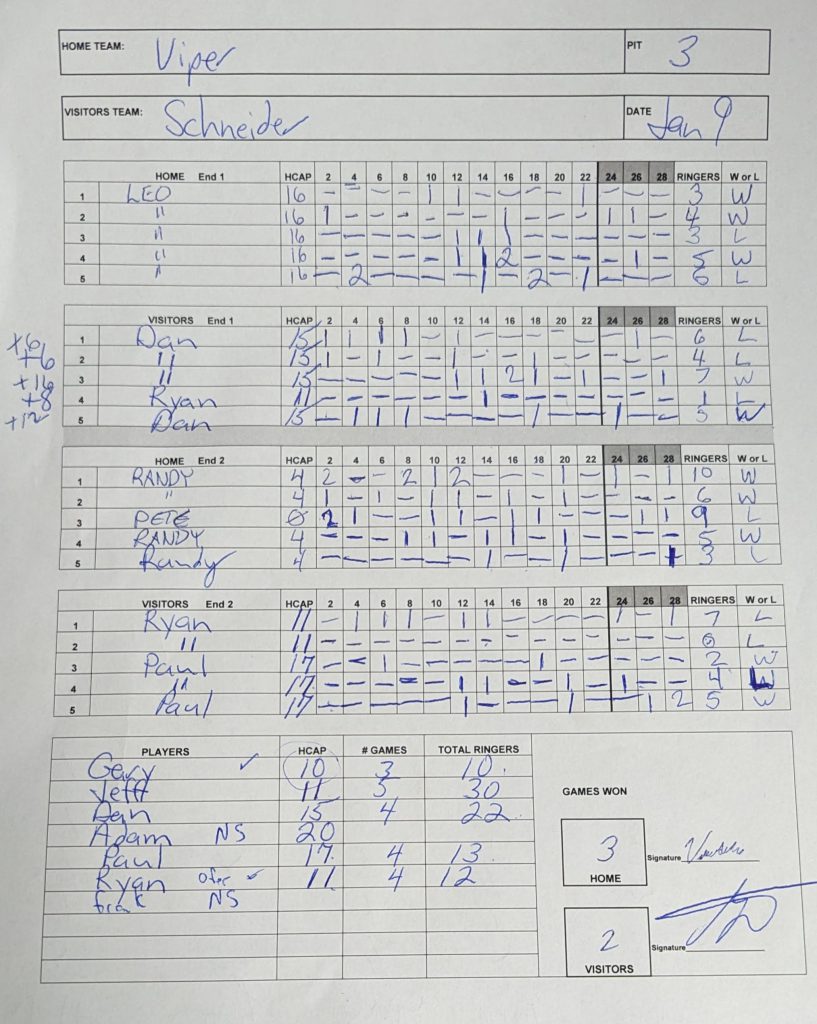 HOME TEAM: Viper PIT 3
VISITORS TEAM: Schneider DATE Jan 9
HOME End 1 HCAP 2 4 6 8 10 12 14 16 18 20 22 24 26 28 RINGERS W or L
1 LEO 16 - - - - 1 1 - - - - 1 - - - 3 W
2 " 16 1 - - - - - - 1 - - - 1 1 - 4 W
3 " 16 - - - - - 1 1 1 - - - - - - 3 L
4 " 16 - - - - - 1 1 2 - - - - 1 - 5 W
5 " 16 - 2 - - - - 1 - 2 - 1 - - - 6 L
VISITORS End 1 HCAP 2 4 6 8 10 12 14 16 18 20 22 24 26 28 RINGERS W or L
+6 1 Dan 15 1 1 1 1 - 1 - - - - - - 1 - 6 L
+6 2 " 15 1 - 1 - - 1 - - 1 - - - - - 4 L
+16 3 " 15 - - - - - 1 1 2 1 - 1 - - 1 7 W
+8 4 Ryan 11 - - - - - - 1 - - - - - - - 1 L
+12 5 Dan 15 - 1 1 1 - - - - 1 - - 1 - - 5 W
HOME End 2 HCAP 2 4 6 8 10 12 14 16 18 20 22 24 26 28 RINGERS W or L
1 RANDY 4 2 - - 2 1 2 - - - 1 - 1 - 1 10 W
2 " 4 1 - 1 - 1 1 - 1 - 1 - - - - 6 W
3 PETE 0 2 1 - - 1 1 - 1 1 - - - 1 1 9 L
4 RANDY 4 - - - 1 1 - 1 - 1 1 - - - - 5 W
5 Randy 4 - - - - - - 1 - - 1 - - - 1 3 L
VISITORS End 2 HCAP 2 4 6 8 10 12 14 16 18 20 22 24 26 28 RINGERS W or L
1 Ryan 11 - 1 1 1 - 1 1 - - - - 1 - 1 7 L
2 " 11 - - - - - - - - - - - - - - 0 L
3 Paul 17 - - 1 - - - - - 1 - - - - - 2 W
4 " 17 - - - - - 1 1 - - 1 - 1 - - 4 W
5 Paul 17 - - - - - 1 - - - 1 - - 1 2 5 W
PLAYERS HCAP # GAMES TOTAL RINGERS
Gary ✓ 10 3 10.
Jeff 11 5 30
Dan 15 4 22.
Adam NS 20
Paul 17 4 13.
Ryan ✓ 11 4 12
NS
GAMES WON
3 Signature
HOME
2 Signature
VISITORS